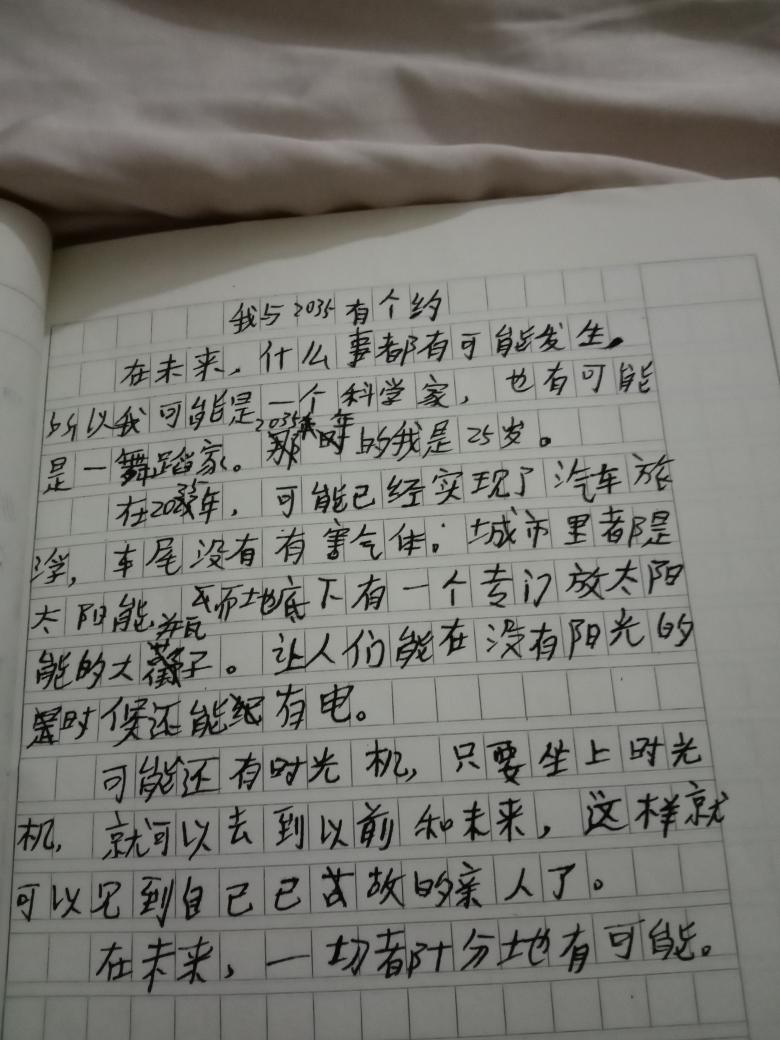 我与2035有个约
在未来，什么事都有可能发生。
所以我可能是一个科学家，也有可能
是一舞蹈家。2035年的我是25岁。
在2035年，可能已经实现了汽车旅
车尾没有有害气体；城市里都是
太阳能，而地底下有一个专门放太阳
能的大瓶子。让人们能在没有阳光的
时候还能有电。
可能还有时光机，只要坐上时光
机，就可以去到以前和未来，这样就
可以见到自己已故的亲人了。
在未来，一切都十分地有可能。